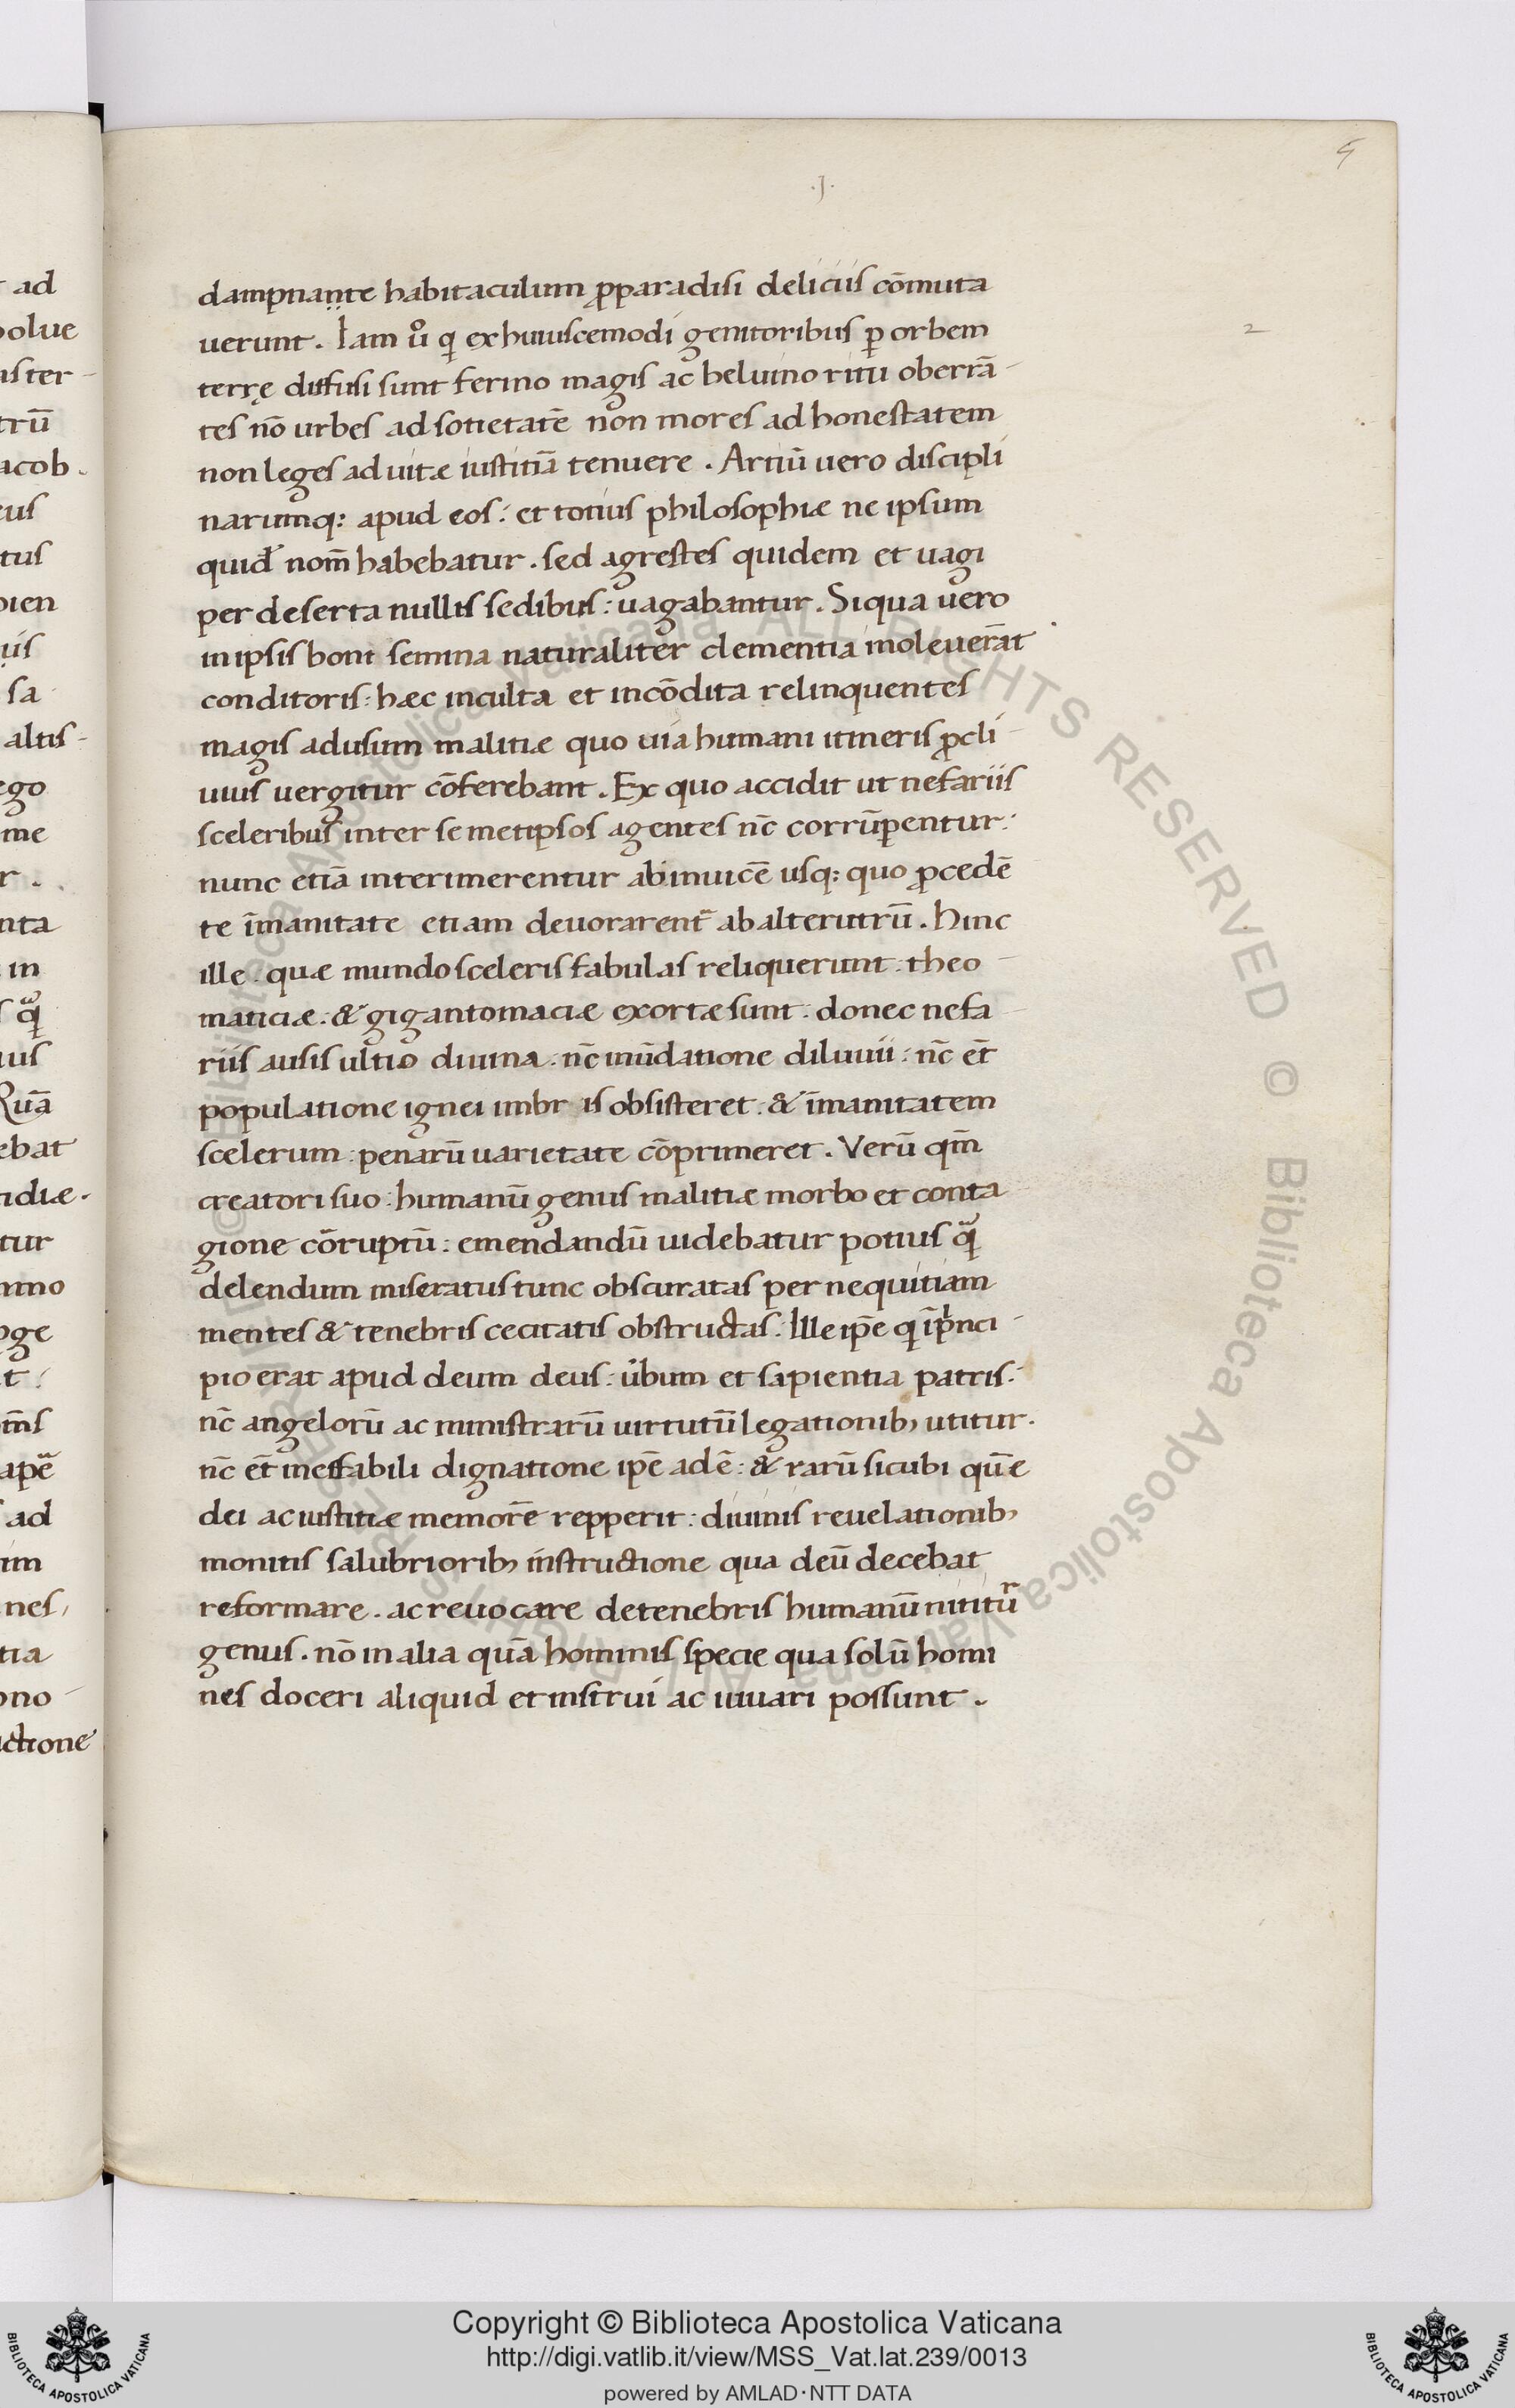 5
.J.
dampnante habitaculum p̱paradisi deliciis cōmuta
uerunt. Iam u̇o q exhuiuscemodi genitoribus ꝑ orbem
terrę diffusi sunt ferino magis ac beluino ritu oberrā-
tes nō urbes ad sotietatē non mores ad honestatem
non leges ad uitæ iustitiā tenuere. Artiū uero discipli
narumq: apud eos: et totius philosophiæ ne ipsum
quid̄ nom̄ habebatur. sed agrestes quidem et uagi
per deserta nullis sedibus: uagabantur. Siqua uero
in ipsis boni semina naturaliter clementia inoleuer̄at
conditoris: hæc inculta et incōdita relinquentes
magis adusum malitiæ quo uia humani itineris ꝓcli-
uius uergitur cōferebant. Ex quo accidit ut nefariis
sceleribus inter se metipsos agentes nc̄ corrūꝑentur:
nunc etiā interimerentur abinuicē usq: quo ꝓcedē
te īmanitate etiam deuorarent᷑ ab alterutrū. hinc
ille. quæ mundo sceleris fabulas reliquerunt: theo-
maticiæ: & gigantomaciæ exortæ sunt: donec nefa-
riis ausis ultio diuina: nc̄ inūdatione diluuii: nc̄ et̄
populatione ignei imbr is obsisteret: & īmanitatem
scelerum: penarū uarietate cōprimeret. Verū qm̄
creatori suo: humanū genus malitiæ morbo et conta-
gione cōruptū: emendandū uidebatur potius qᷓ
delendum miseratus tunc obscuratas per nequitiam
mentes & tenebris cecitatis obstructas. Ille ip̄e q īpͥnci-
pio erat apud deum deus: u̇bum et sapientia patris:
nc̄ angelorū ac ministrarū uirtutū legationib; utitur.
nc̄ et̄ ineffabili dignatione ip̄e adē: & rarū sicubi qūe
dei ac iustitiæ memorē repperit: diuinis reuelationib;
monitis salubriorib; instructione qua deū decebat
reformare. ac reuocare detenebris humanū nititur
genus. nō in alia quā hominis specie qua solū homi
nes doceri aliquid et instrui ac iuuari possunt.
2
Copyright © Biblioteca Apostolica Vaticana
http://digi.vatlib.it/view/MSS_Vat.lat.239/0013
powered by AMLAD·NTT DATA